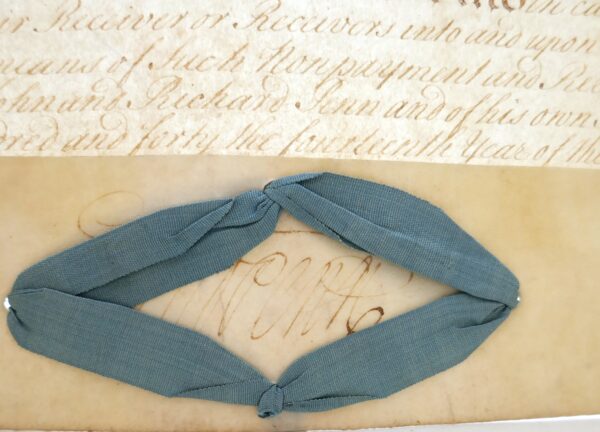 in ca
ir Receiver or Receivers into and upon
means of Such Nonpayment and Rie
ohn and Richard Penn and of his own
dred and forty the fourteenth Year of the